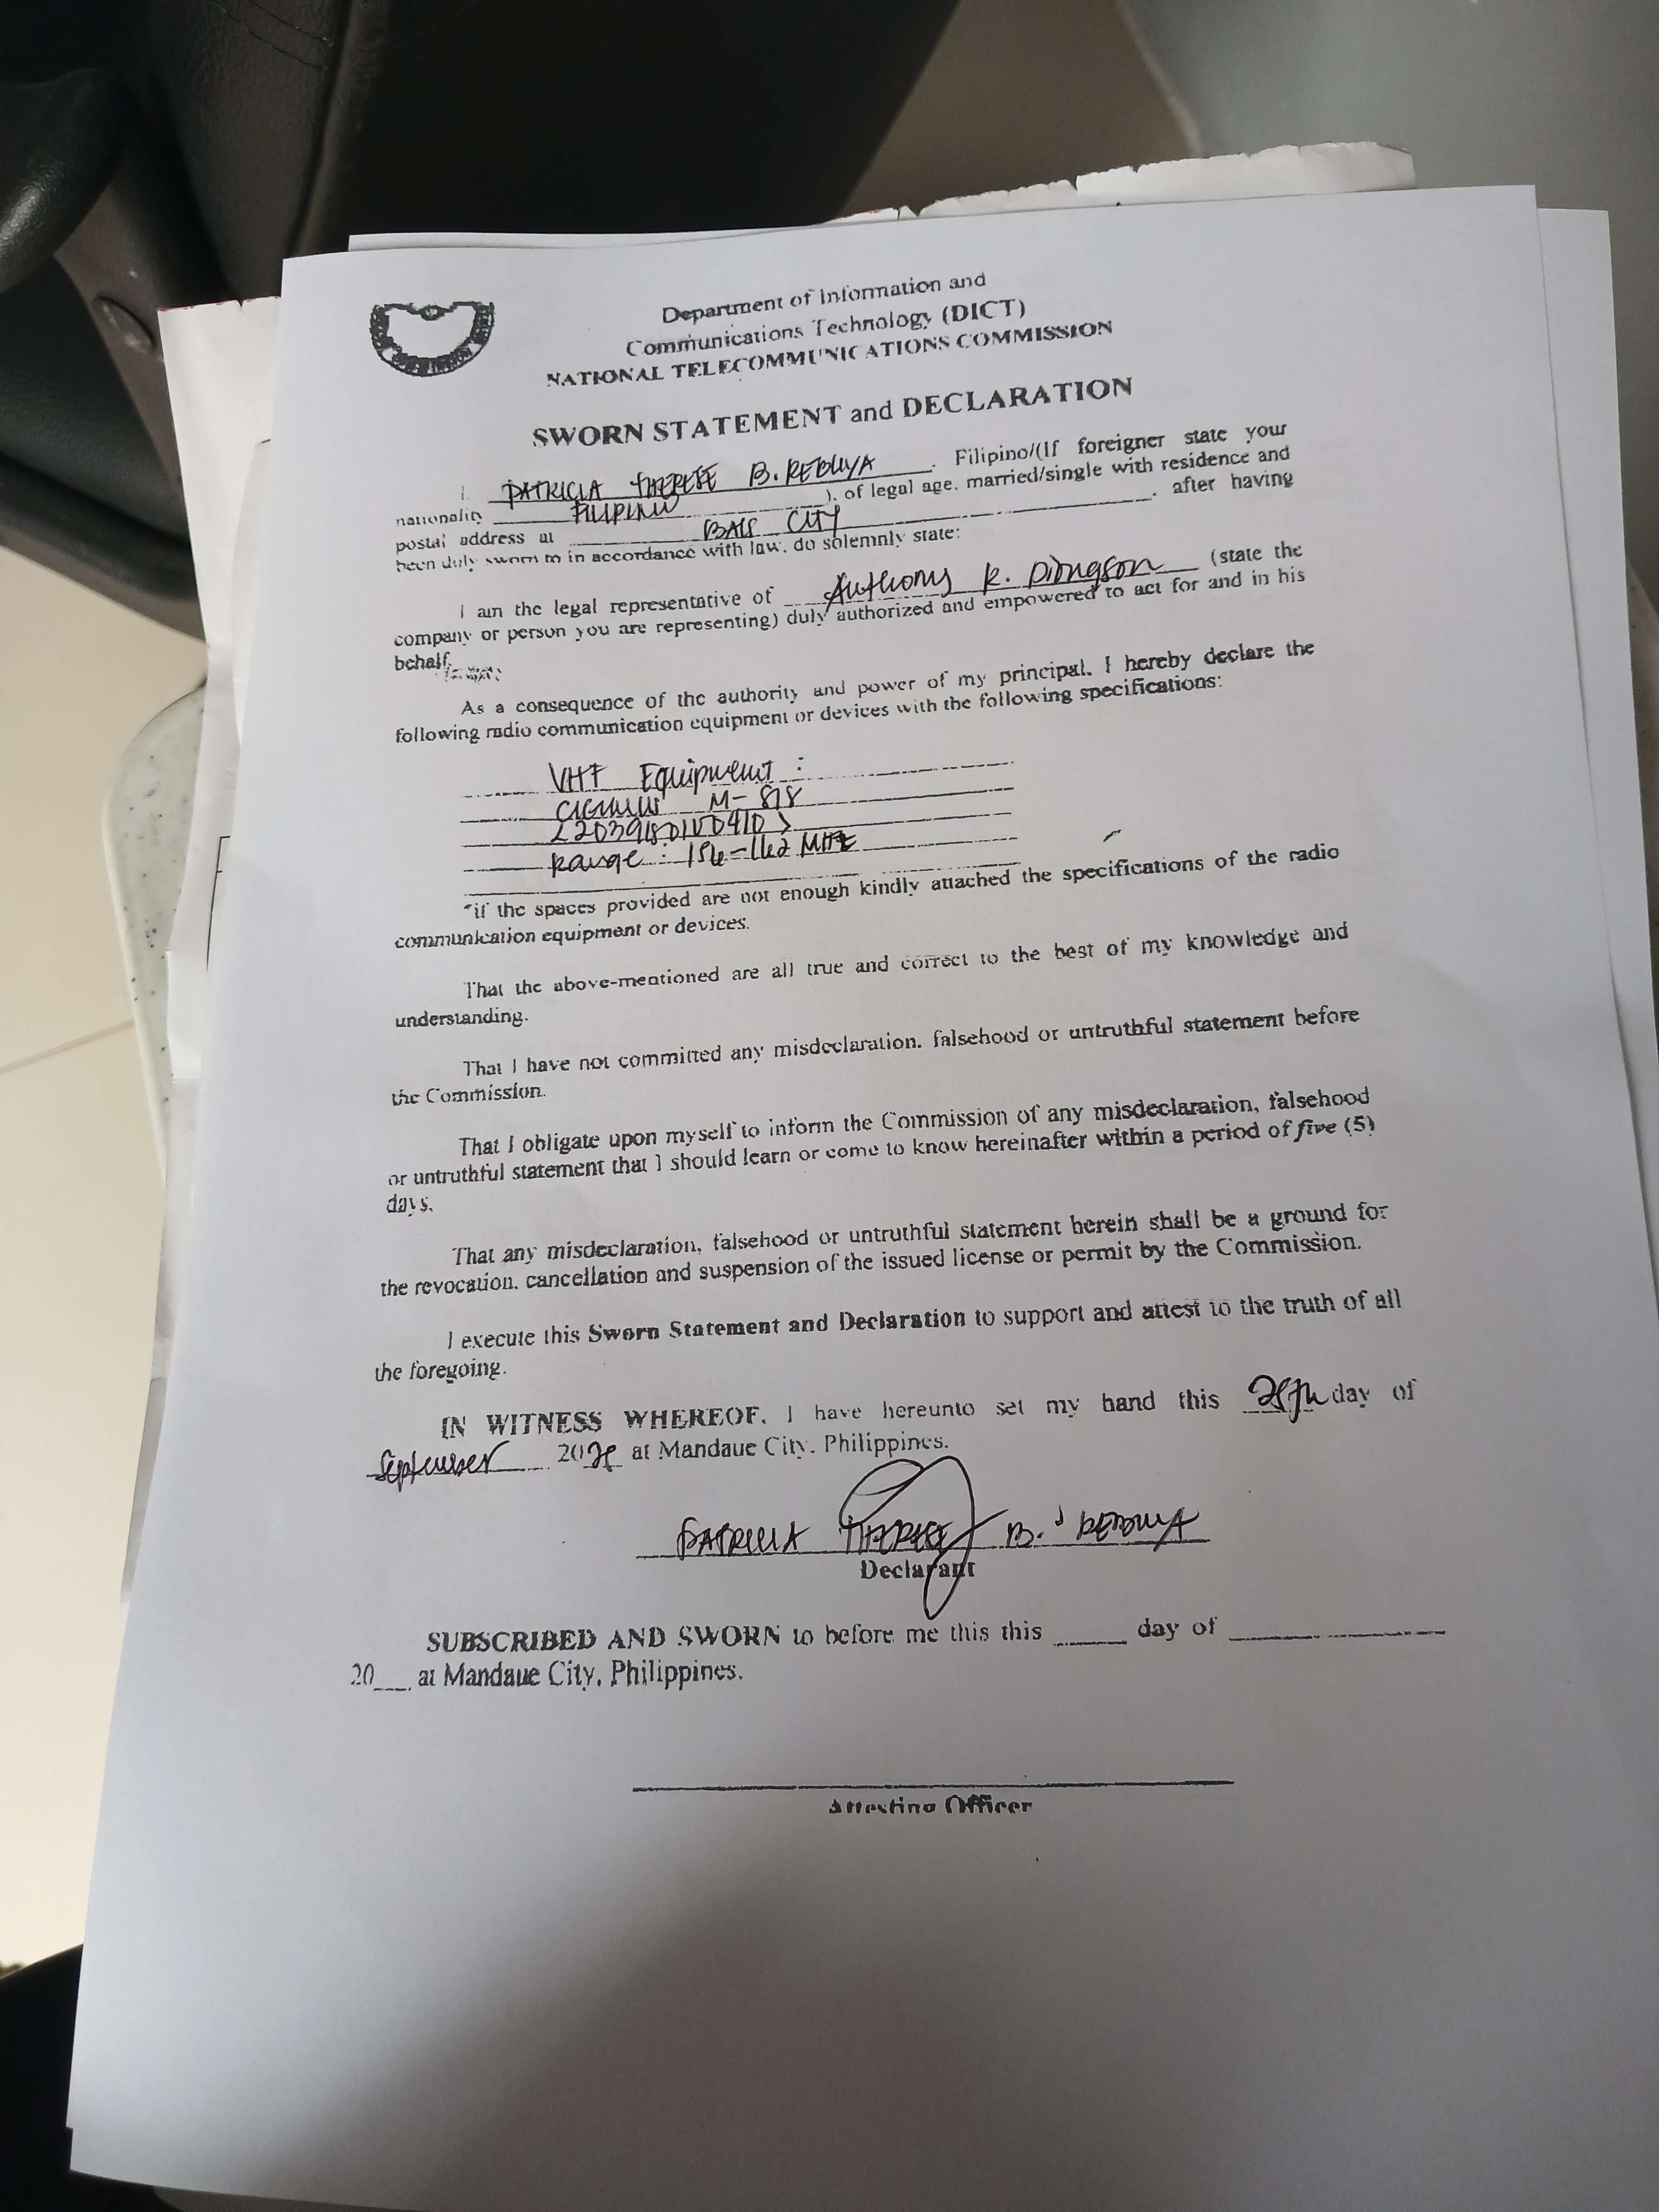 Department of Information and
Communications Technology (DICT)
NATIONAL TELECOMMUNICATIONS COMMISSION
SWORN STATEMENT and DECLARATION
I, PATRICIA THERESE B. REBUYA, Filipino/(If foreigner state your
nationality FILIPINO ), of legal age, married/single with residence and
postal address at BAIS CITY, after having
been duly sworn to in accordance with law, do solemnly state:
I am the legal representative of Anthony R. Dinngson (state the
company or person you are representing) duly authorized and empowered to act for and in his
behalf.
As a consequence of the authority and power of my principal, I hereby declare the
following radio communication equipment or devices with the following specifications:
VHF Equipment :
M-818
Range : 156-162 MHz
*if the spaces provided are not enough kindly attached the specifications of the radio
communication equipment or devices.
That the above-mentioned are all true and correct to the best of my knowledge and
understanding.
That I have not committed any misdeclaration, falsehood or untruthful statement before
the Commission.
That I obligate upon myself to inform the Commission of any misdeclaration, falsehood
or untruthful statement that I should learn or come to know hereinafter within a period of five (5)
days.
That any misdeclaration, falsehood or untruthful statement herein shall be a ground for
the revocation, cancellation and suspension of the issued license or permit by the Commission.
I execute this Sworn Statement and Declaration to support and attest to the truth of all
the foregoing.
IN WITNESS WHEREOF, I have hereunto set my hand this day of
September 20 at Mandaue City, Philippines.
PATRICIA THERESE B. REBUYA
Declarant
SUBSCRIBED AND SWORN to before me this this ____ day of ________
20___ at Mandaue City, Philippines.
Attesting Officer